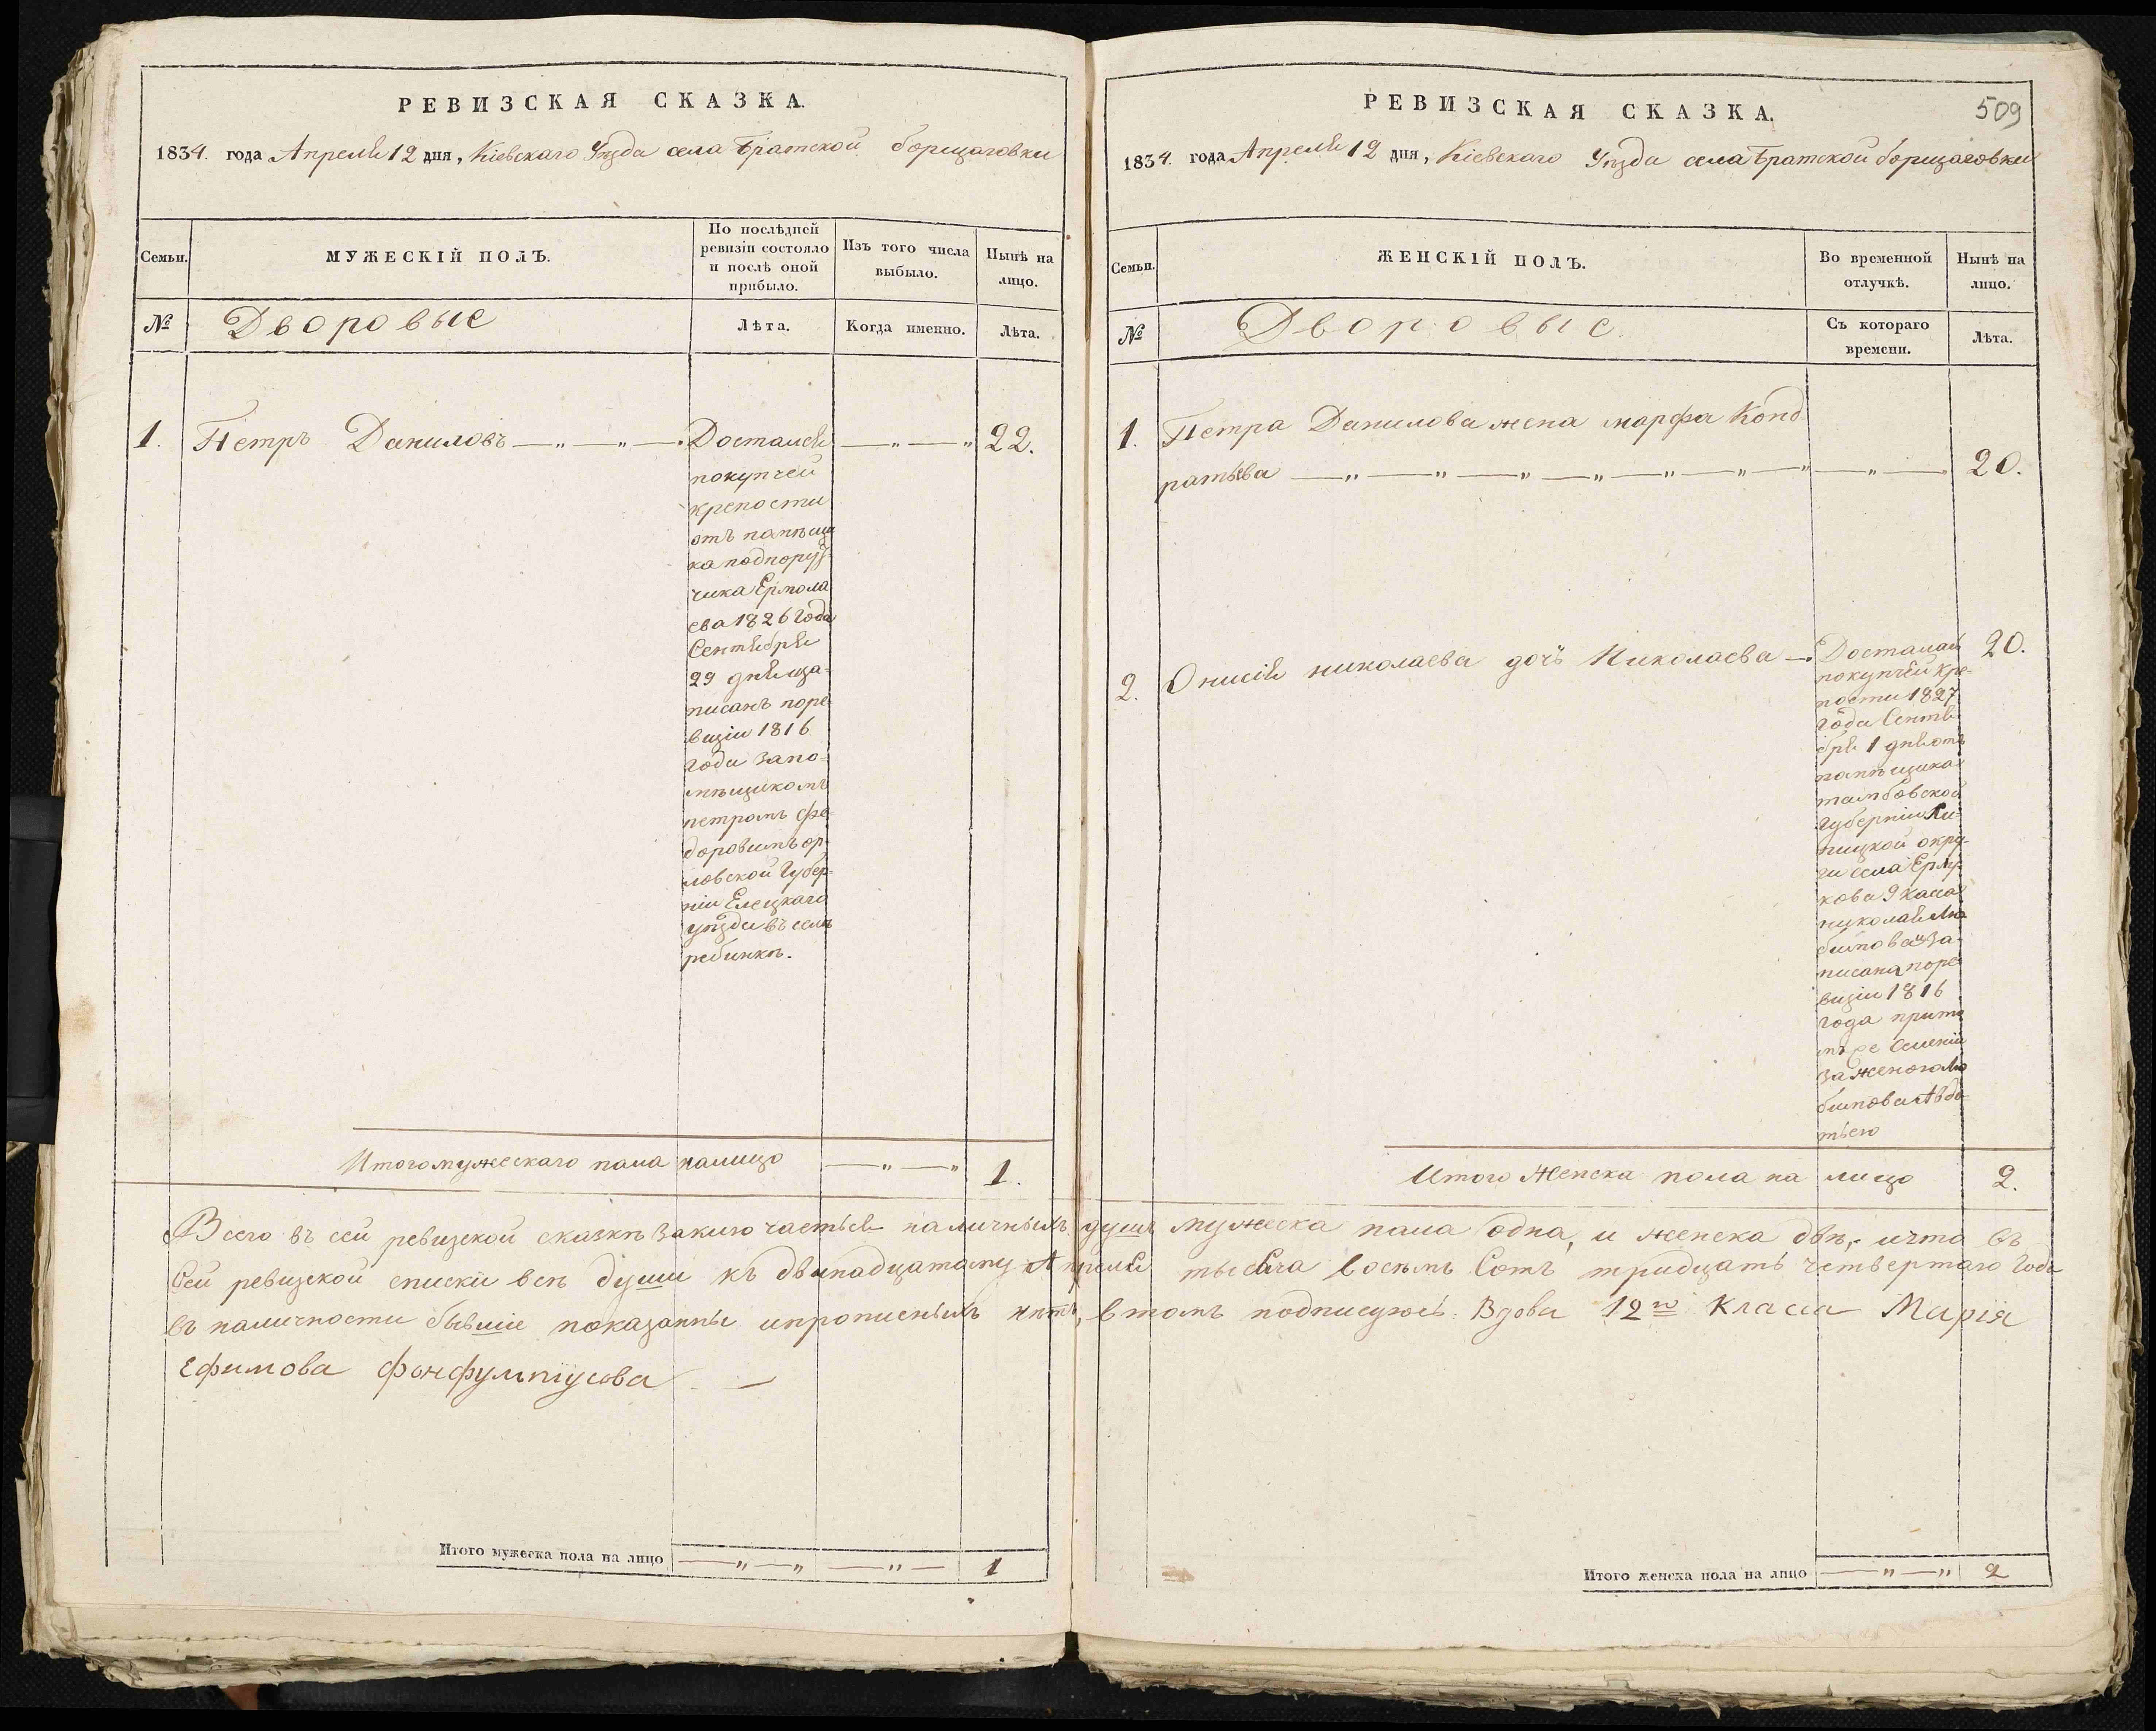 РЕВИЗСКАЯ СКАЗКА.
1834. года Апреля 12 дня, Кіевскаго Уезда села Братской борщаговки
Семьи.
МУЖЕСКІЙ ПОЛЪ.
По послѣдней
ревизіи состояло
и послѣ оной
прибыло.
Изъ того числа
выбыло.
Нынѣ на
лицо.
№
Дворовые
Лѣта.
Когда именно.
Лѣта.
1. Петръ Даниловъ — „ — „ — Достался — „ — „ 22.
покупчей
крепости
отъ памѣщи
ка подпору
чика Ермола
ева 1826 года
Сентября
29 дня за-
писанъ поре
визіи 1816
года запо-
мѣщикомъ
петромъ Фе-
доровымъ ор-
ловской Губер-
ніи Елецкаго
уѣзда въ селѣ
ребинкѣ.
Итого мужескаго пала налицо — „ — „ 1.
РЕВИЗСКАЯ СКАЗКА.
509
1834. года Апреля 12 дня, Кіевскаго Уѣзда села Братской борщаговки
Семьи.
ЖЕНСКІЙ ПОЛЪ.
Во временной
отлучкѣ.
Нынѣ на
лицо.
№
Дворовые
Съ котораго
времени.
Лѣта.
1. Петра Данилова жена марфа Конд
ратьева — „ — „ — „ — „ — „ — „ — „ — „ — 20.
2. Онисія николаева дочь Николаева — Досталась 20.
покупчей кре-
пости 1827
года Сентя
бря 1 дня отъ
памѣщика
тамбовской
губерніи Ли-
пицкой окру-
ги села
николая Лю
бимова и за-
писана поре
визіи 1816
года прито
мъ же селеніи
за женою Лю
бимова Авдо-
тьею
Итого Женска пола на лицо 2.
Всего въ сей ревизской сказкѣ заключается наличныхъ душъ мужеска пала одна, и женска двѣ, и что въ
Сей ревизской списки всѣ души къ двѣнадцатому Апреля тысяча восѣмъ Сотъ тридцать четвертаго Года
въ наличности бывшіе показанны и прописныхъ нѣтъ, в томъ подписуюсь. Вдова 12го Класса Марія
Ефимова Фонфульпіусова —
Итого мужеска пола на лицо — „ — „ — „ — 1
Итого женска пола на лицо — „ — „ 2